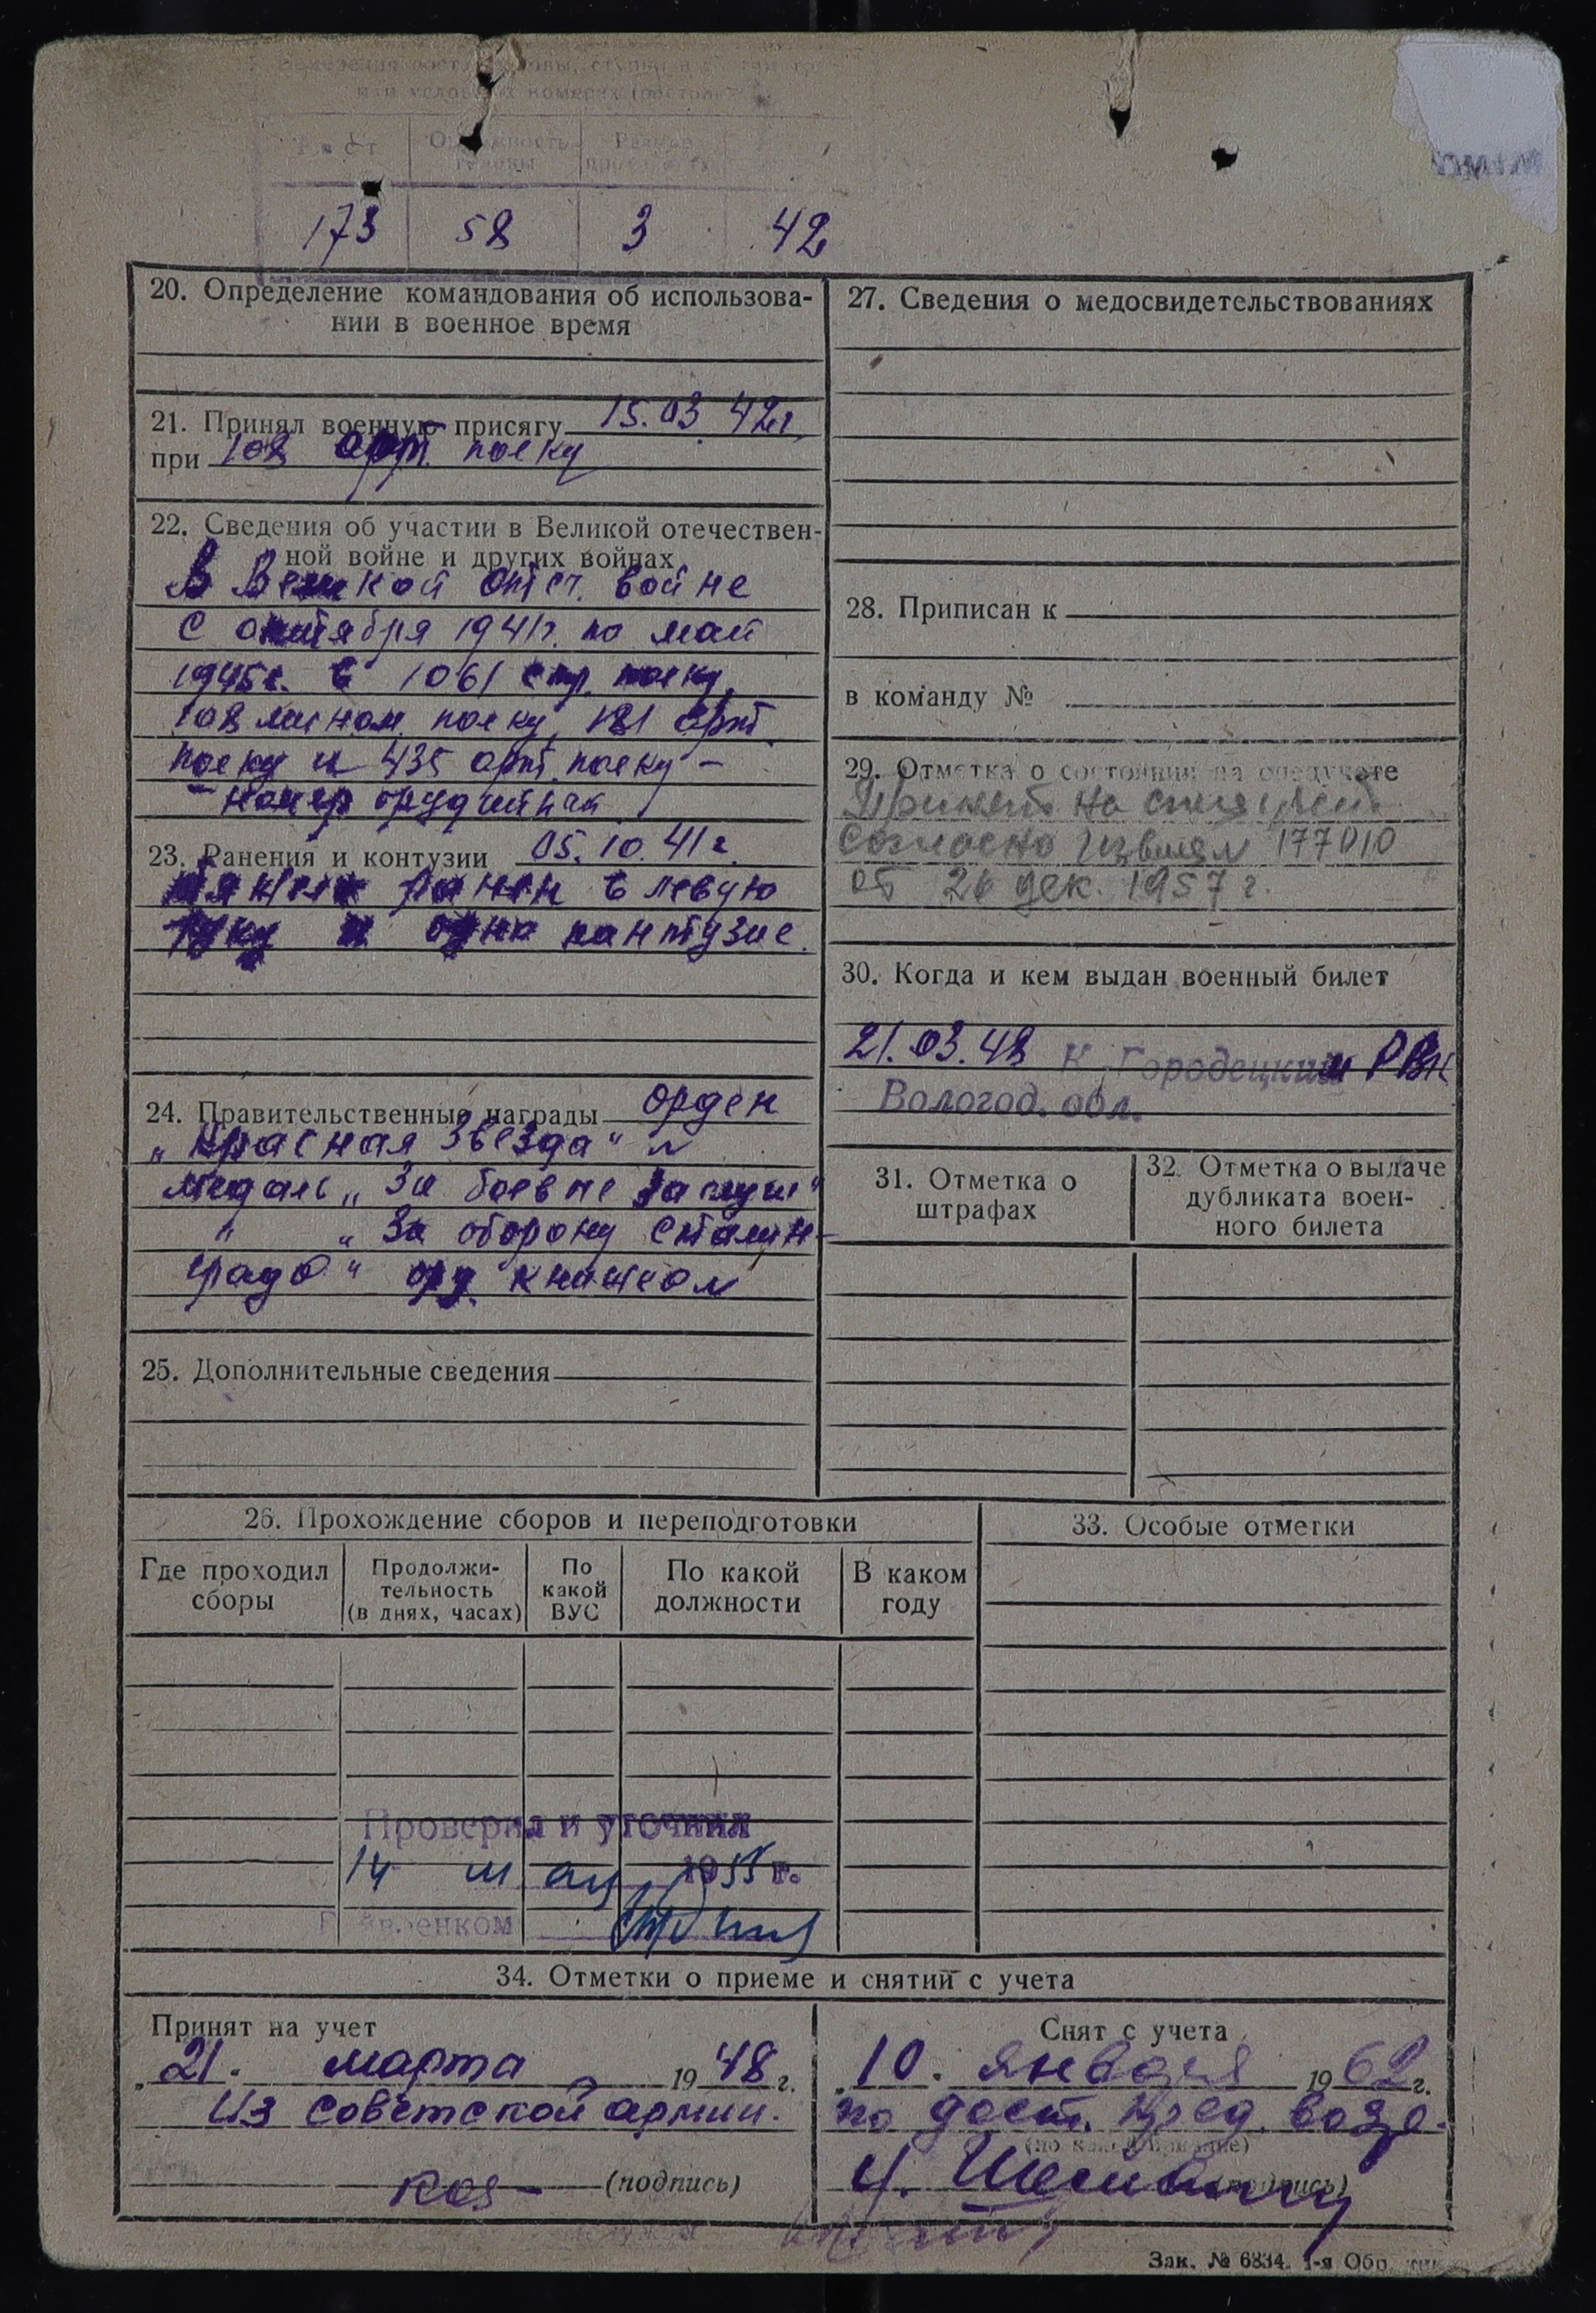 или условных номерах
Рост
Окружность головы
173 58 3 42
20. Определение командования об использова-
нии в военное время
21. Принял военную присягу 15.03 42г.
при 108 арт. полку
22. Сведения об участии в Великой отечествен-
ной войне и других войнах
В Великой отеч. войне
с октября 1941г. по май
1945г. в 1061 стр. полку,
108 мином. полку, 181 арт.
полку и 435 арт. полку –
номер орудийный
23. Ранения и контузии 05.10.41г.
ранен в левую
руку и одна контузие.
24. Правительственные награды орден
„Красная Звезда" и
медаль „За боевые заслуги"
" „За оборону Сталин-
града" орд. книжкой
25. Дополнительные сведения
26. Прохождение сборов и переподготовки
Где проходил
сборы
Продолжи-
тельность
(в днях, часах)
По
какой
ВУС
По какой
должности
В каком
году
Проверил и уточнил
14 мая 1955 г.
27. Сведения о медосвидетельствованиях
28. Приписан к
в команду №
29. Отметка о состоянии на спецучете
Принят на спец учет
согласно 177010
от 26 дек. 1957 г.
30. Когда и кем выдан военный билет
21.03.48 К. Городецким РВК
Вологод. обл.
31. Отметка о
штрафах
32. Отметка о выдаче
дубликата воен-
ного билета
33. Особые отметки
34. Отметки о приеме и снятии с учета
Принят на учет
„21. марта 1948 г.
Из советской армии.
(подпись)
Снят с учета
„10. января 1962 г.
по дост. пред. возр.
(подпись)
Зак. № 6834. 1-я Обр. тип.